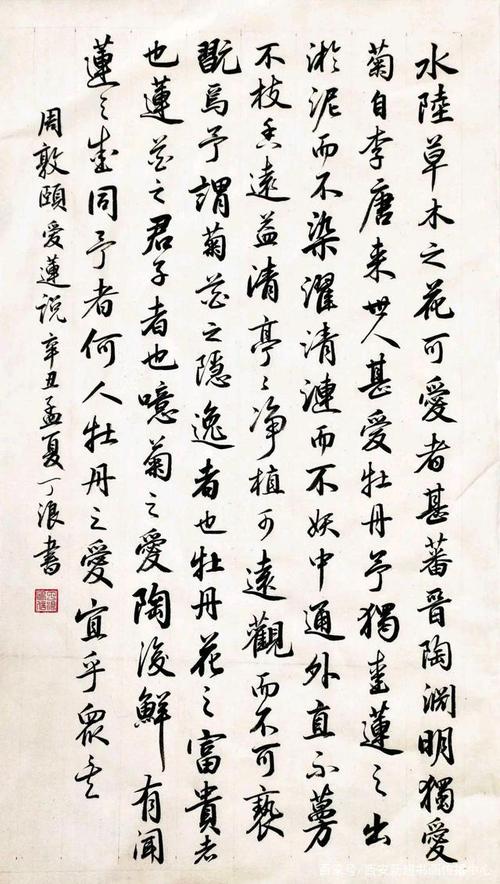 水陸草木之花可愛者甚蕃晉陶渊明獨愛
菊自李唐来世人甚愛牡丹予獨愛蓮之出
淤泥而不染濯清漣而不妖中通外直不蔓
不枝香遠益清亭〻净植可遠觀而不可褻
翫焉予謂菊花之隐逸者也牡丹花之富貴者
也蓮花之君子者也噫菊之愛陶後鮮有聞
蓮之愛同予者何人牡丹之愛宜乎眾矣
周敦頤愛蓮說辛丑孟夏丁浪書
百家号/西安